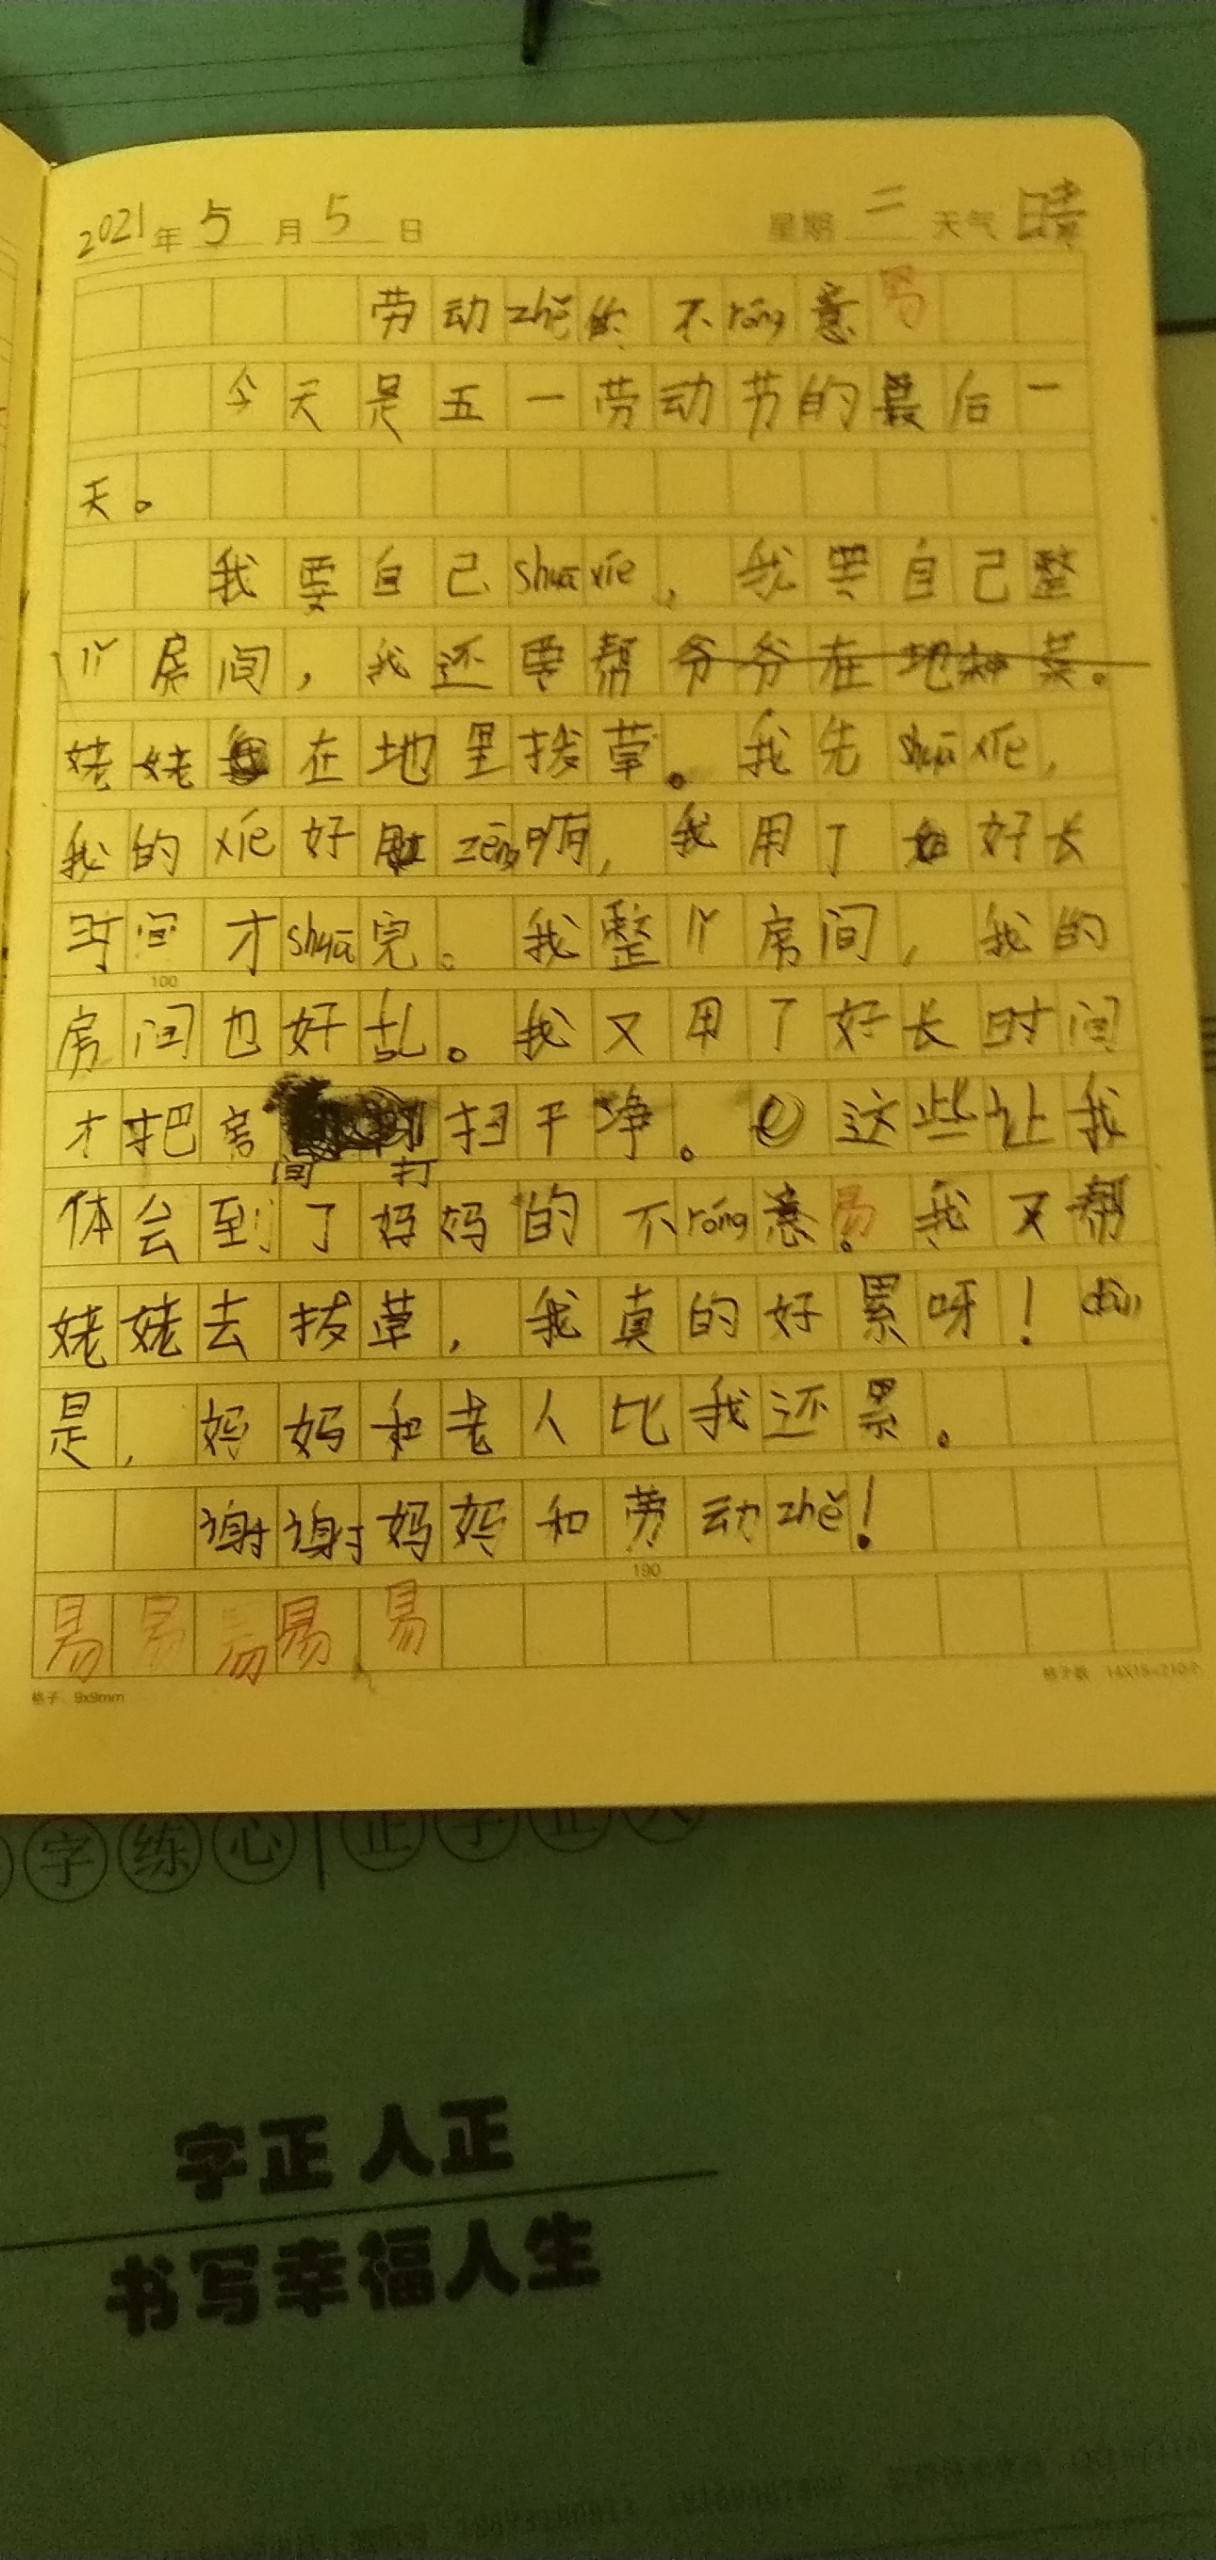 2021年5月5日 星期二 天气晴
劳动zhě的不róng意易
今天是五一劳动节的最后一
天。
我要自己shuāxié,我要自己整
个房间,我还要帮爷爷在地种菜。
姥姥在地里拔草。我先shuāxié,
我的xié好脏zēng啊,我用了好长
时间才shuā完。我整个房间,我的
房间也好乱。我又用了好长时间
才把房间打扫干净。这些让我
体会到了妈妈的不róng意易。我又帮
姥姥去拔草,我真的好累呀!
是,妈妈和老人比我还累。
谢谢妈妈和劳动zhě!
100
190
易易易易易
格子:9x9mm
字练心|正字正人
字正 人正
书写幸福人生